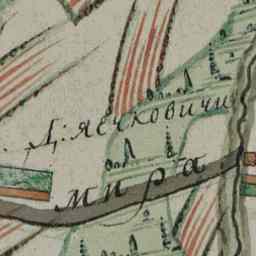 Д: ясчковичи
мира